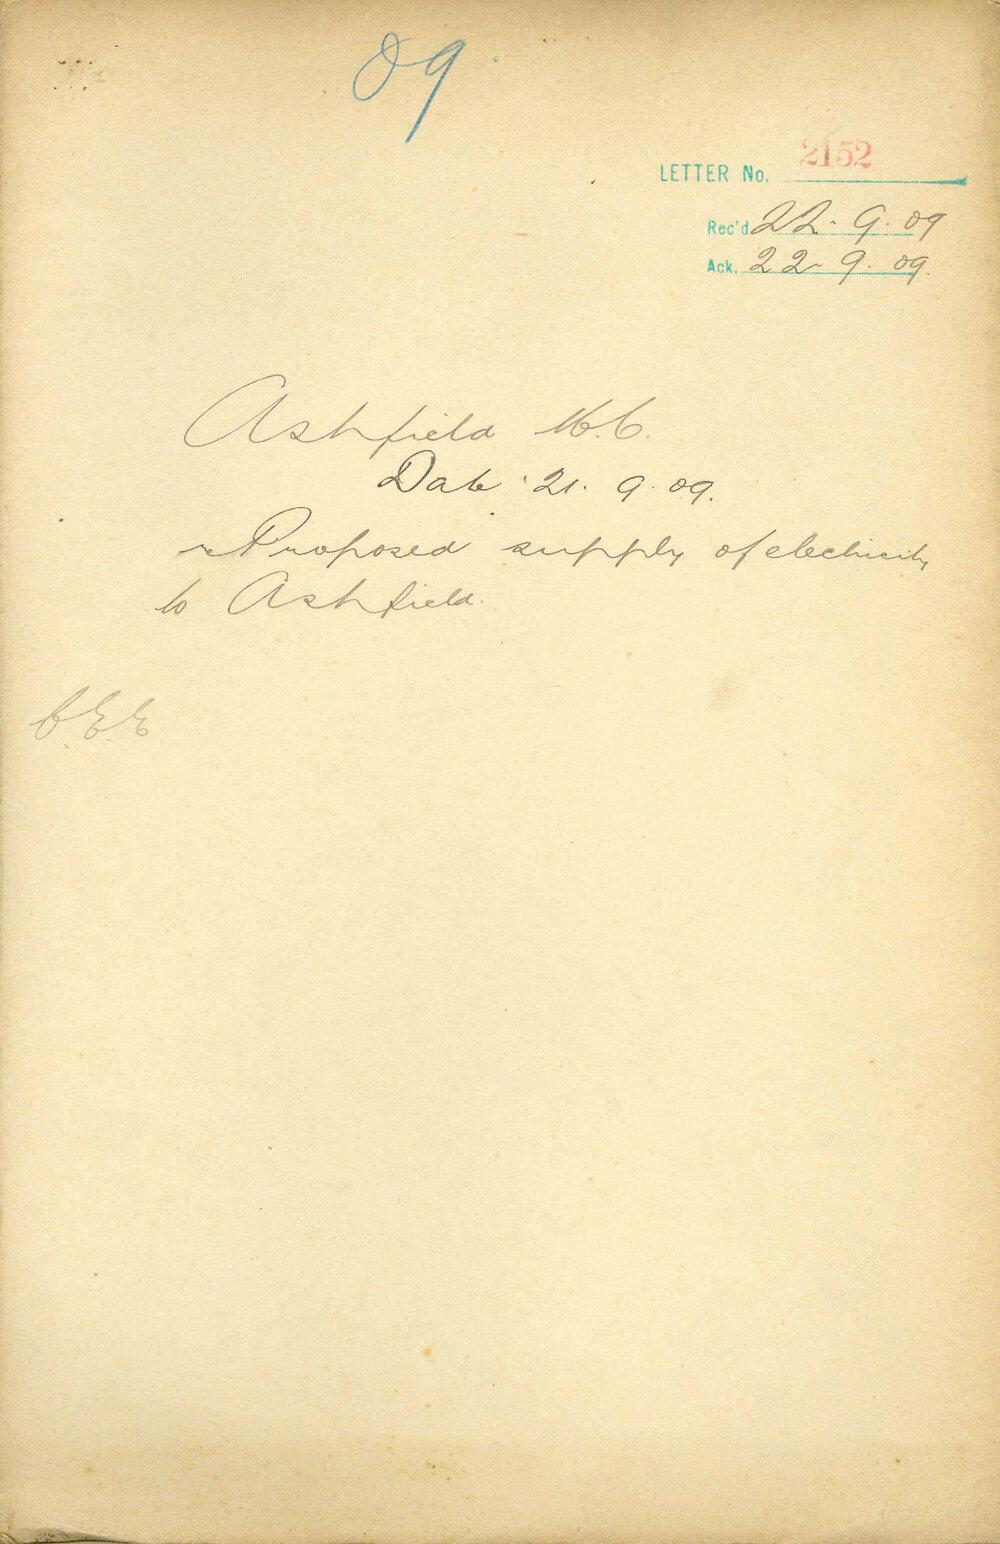 09
LETTER No. 2152
Rec'd 22.9.09
Ack. 22.9.09.
Ashfield M.C.
Date 21.9.09.
re Proposed supply of electricity
to Ashfield.
CEE